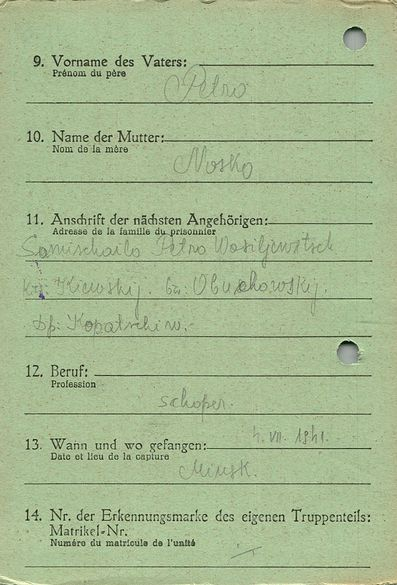 9. Vorname des Vaters:
Prénom du père
Petro
10. Name der Mutter:
Nom de la mère
Nosko
11. Anschrift der nächsten Angehörigen:
Adresse de la famille du prisonnier
Samischailo Petro Wasiljewitsch
Kiewskij. Obuchowskij.
Df: Kopatschiw.
12. Beruf:
Profession
schoper.
13. Wann und wo gefangen: 4. VII. 1941.
Date et lieu de la capture
Minsk.
14. Nr. der Erkennungsmarke des eigenen Truppenteils:
Matrikel-Nr.
Numéro du matricule de l'unité